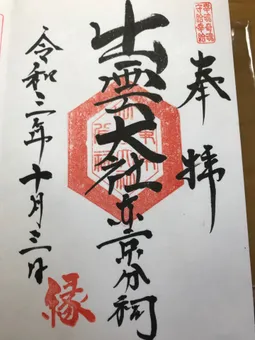 奉拝
出雲大社東京分祠
令和二年十月三日
縁